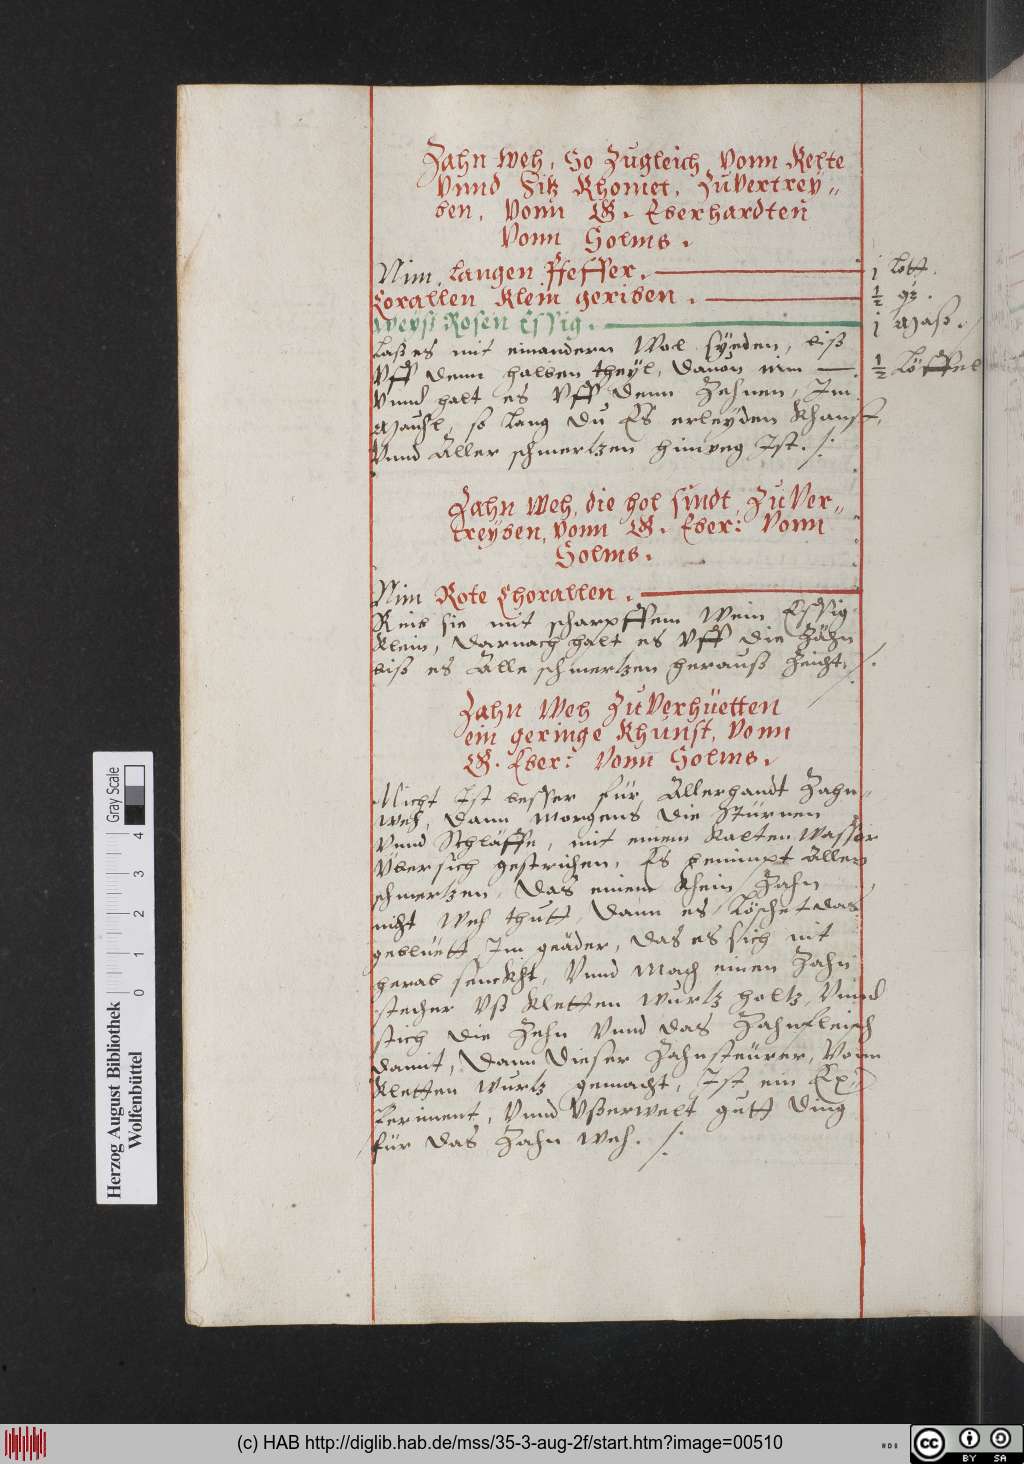 Zahn Weh, So Zugleich Vonn Kelte
Vnnd Hitz Khomet, ZuVertrey„
ben, Vonn G. Eberhardten
Vonn Solms.
Nim, Langen Pfeffer. j Lott.
Corallen Klein geriben. ½ qz.
Weyß Rosen Essig. j Maß.
Laß es mit einandern Wol sÿeden, biß
Vff denn halben theÿl, dauon nim ½ Löffel
Vnnd halt es Vff denn Zehnen, Im
Maul, so Lang du Es erleyden Khanst,
Vnnd Aller schmertzen hinweg Ist. ⁒
Zahn Weh, die hol sindt, ZuVer„
treyben, Vonn G. Eber: Vonn
Solms.
Nim Rote Chorallen.
Reib sie mit scharpffem Wein Essig
Klein, darnach halt es Vff die Zähn
biß es Alle schmertzen herauß Zeicht. ⁒
Zahn Weh ZuVerhüetten
ein geringe Khunst, Vonn
G. Eber: Vonn Solms.
Nicht Ist besser für Allerhandt Zahn„
weh, dann morgens die Stürnen
Vnnd Schläffe, mit einem Kalten Wasser
Vbersich gestrichen, Es benimpt Allen
schmertzen, das einem Khein Zahn
nicht Weh thutt, dann es Löschet das
geblüett Im geäder, das es sich nit
herab senckht, Vnnd Mach einen Zahn
stecher Vß Kletten Wurtz holtz, Vnnd
stich die Zehn Vnnd das Zahnfleisch
damit, Dann dieser Zahnsteürer, Vonn
Kletten Wurtz gemacht, Ist ein Ex„
periment, Vnnd Vßerwelt gutt ding
für das Zahn Weh. ⁒
Herzog August Bibliothek
Wolfenbüttel
0 1 2 3 4
Gray Scale
(c) HAB http://diglib.hab.de/mss/35-3-aug-2f/start.htm?image=00510
cc BY SA